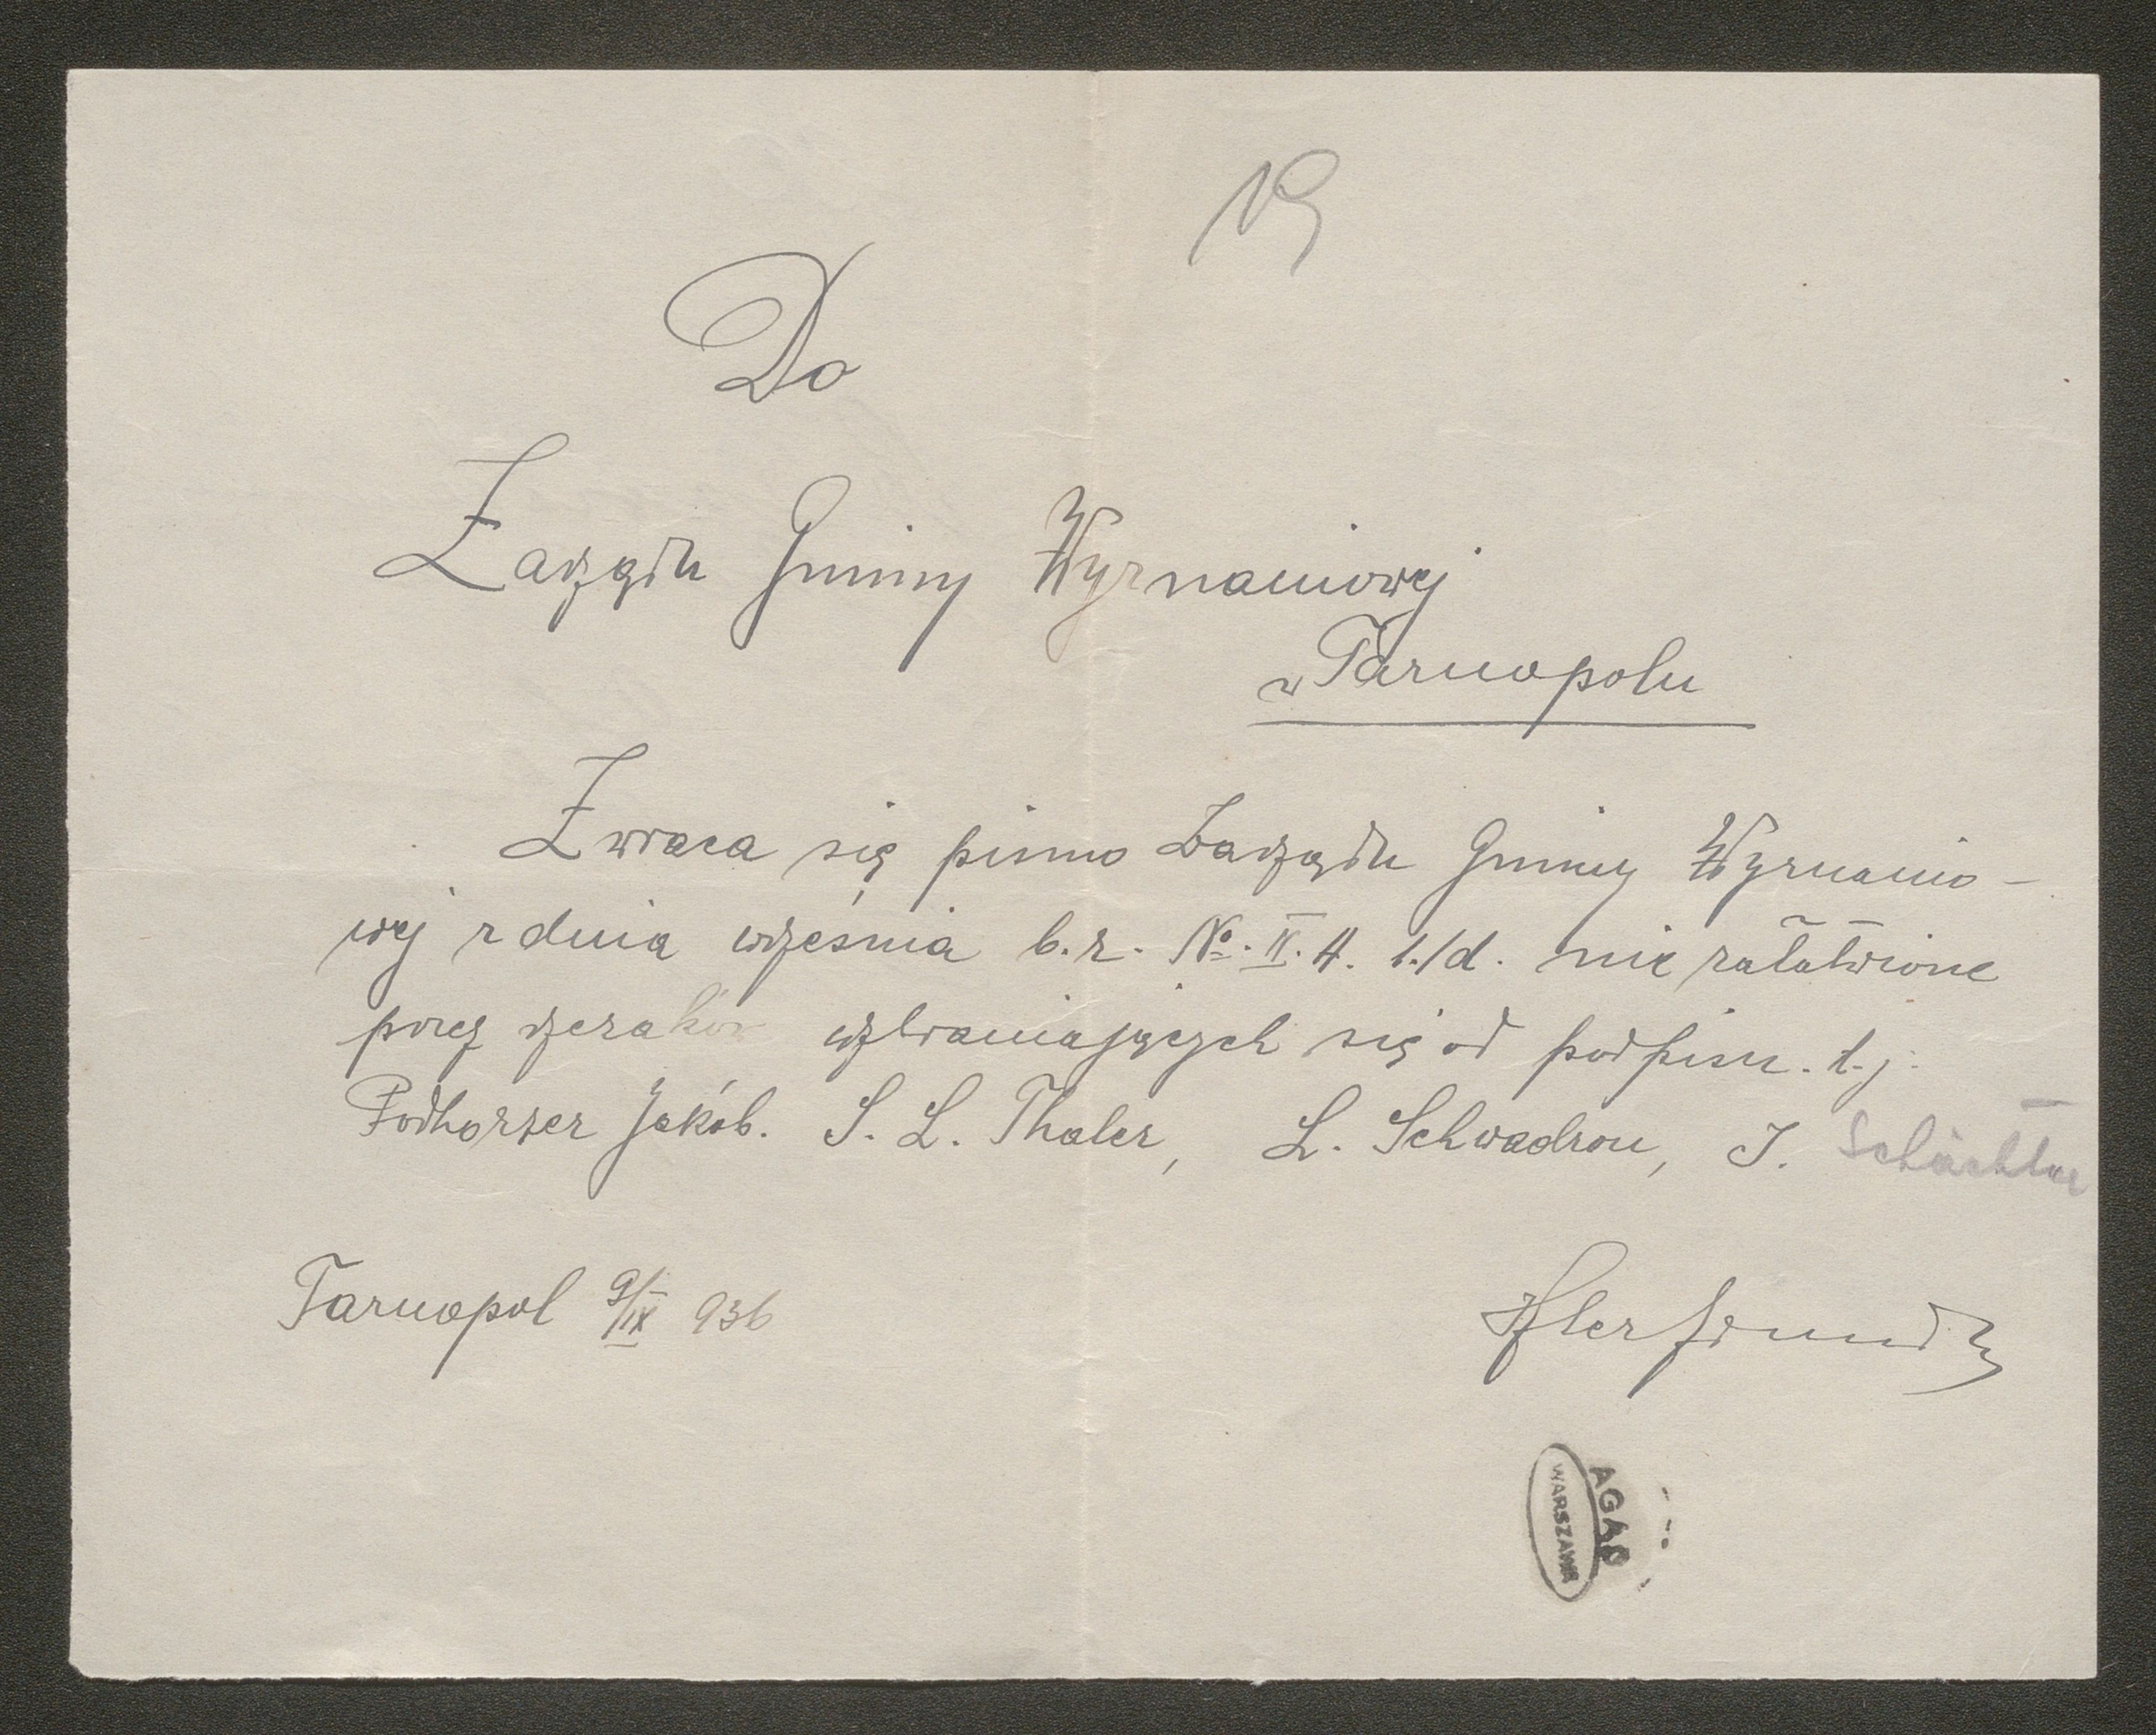 19
Do
Zarządu Gminy Wyznaniowej
w Tarnopolu
Zwraca się pismo Zarządu Gminy Wyznanio-
wej z dnia września b.r. No. II. A. 1./d. nie załatwione
przez rzezaków wzbraniających się od podpisu. t.j.
Podhorzer Jakób. S. L. Thaler, L. Schwadron, I. Schächter
Tarnopol 9/IX 936
AGAD
WARSZAWA